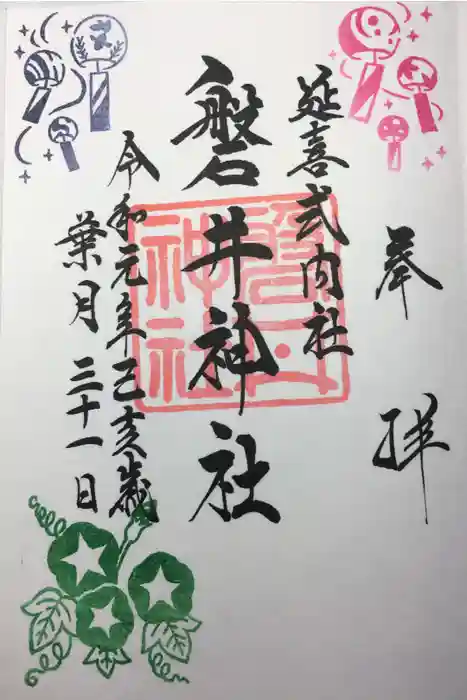 奉拝
延喜式内社
磐井神社
令和元年己亥歳
葉月三十一日